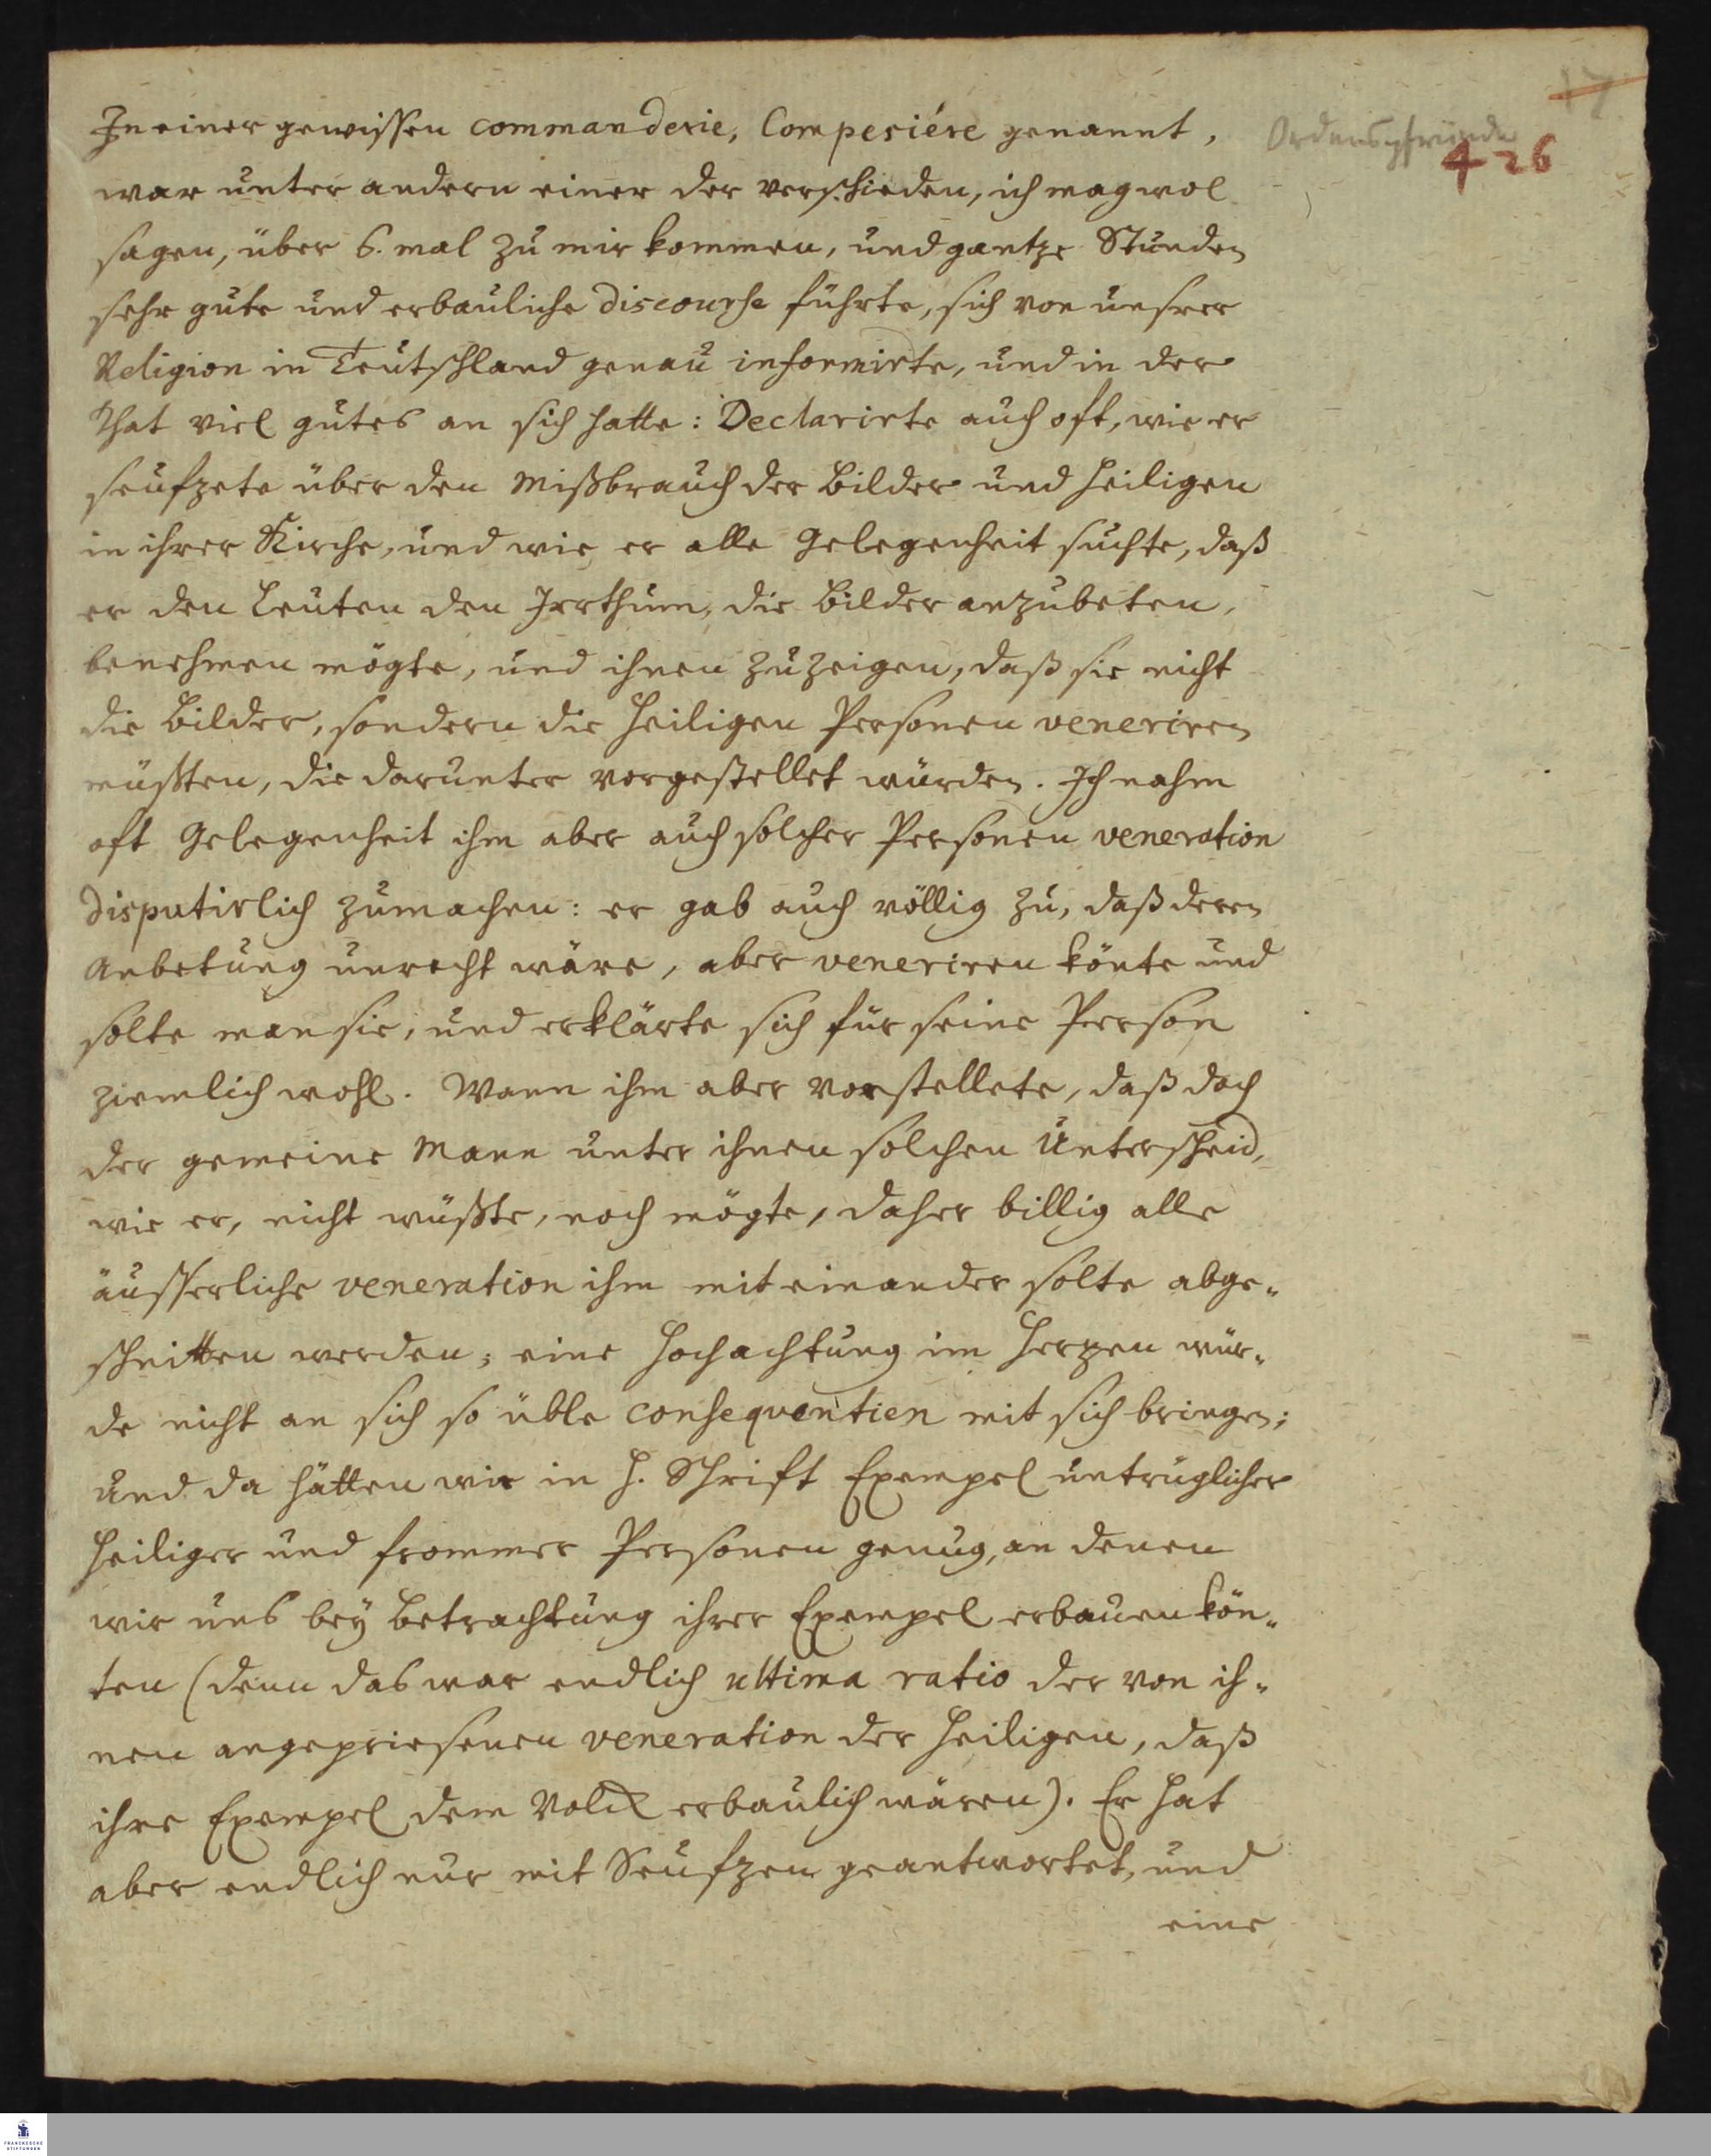 17
Ordenspfründe
426
In einer gewissen commanderie, Compesiére genannt,
war unter andern einer der verschieden, ich mag wol
sagen, über 6. mal zu mir kommen, und gantze Stunden
sehr gute und erbauliche discourse führte, sich von unsrer
Religion in Teutschland genau informirte, und in der
That viel gutes an sich hatte: Declarirte auch oft, wie er
seufzete über den Mißbrauch der Bilder und Heiligen
in ihrer Kirche, und wie er alle Gelegenheit suchte, daß
er den Leuten den Irrthum, die Bilder anzubeten,
benehmen mögte, und ihnen zuzeigen, daß sie nicht
die Bilder, sondern die Heiligen Personen veneriren
müßten, die darunter vorgestellet würden. Ich nahm
oft Gelegenheit ihm aber auch solcher Personen veneration
disputirlich zumachen: er gab auch völlig zu, daß deren
Anbetung unrecht wäre, aber veneriren könte und
solte man sie, und erklärte sich für seine Person
ziemlich wohl. Wann ihm aber vorstellete, daß doch
der gemeine Mann unter ihnen solchen Unterscheid,
wie er, nicht wüßte, noch mögte, daher billig alle
äusserliche veneration ihm mit einander solte abge-
schnitten werden; eine Hochachtung im Herzen wür-
de nicht an sich so üble consequentien mit sich bringen;
und da hätten wir in H. Schrift Exempel untrüglicher
heiliger und frommer Personen genug, an denen
wir uns bey Betrachtung ihrer Exempel erbauen kön-
ten (denn das war endlich ultima ratio der von ih-
nen angepriesenen veneration der Heiligen, daß
ihre Exempel dem Volck erbaulich wären). Er hat
aber endlich nur mit Seufzen geantwortet, und
eine
FRANCKESCHE
STIFTUNGEN